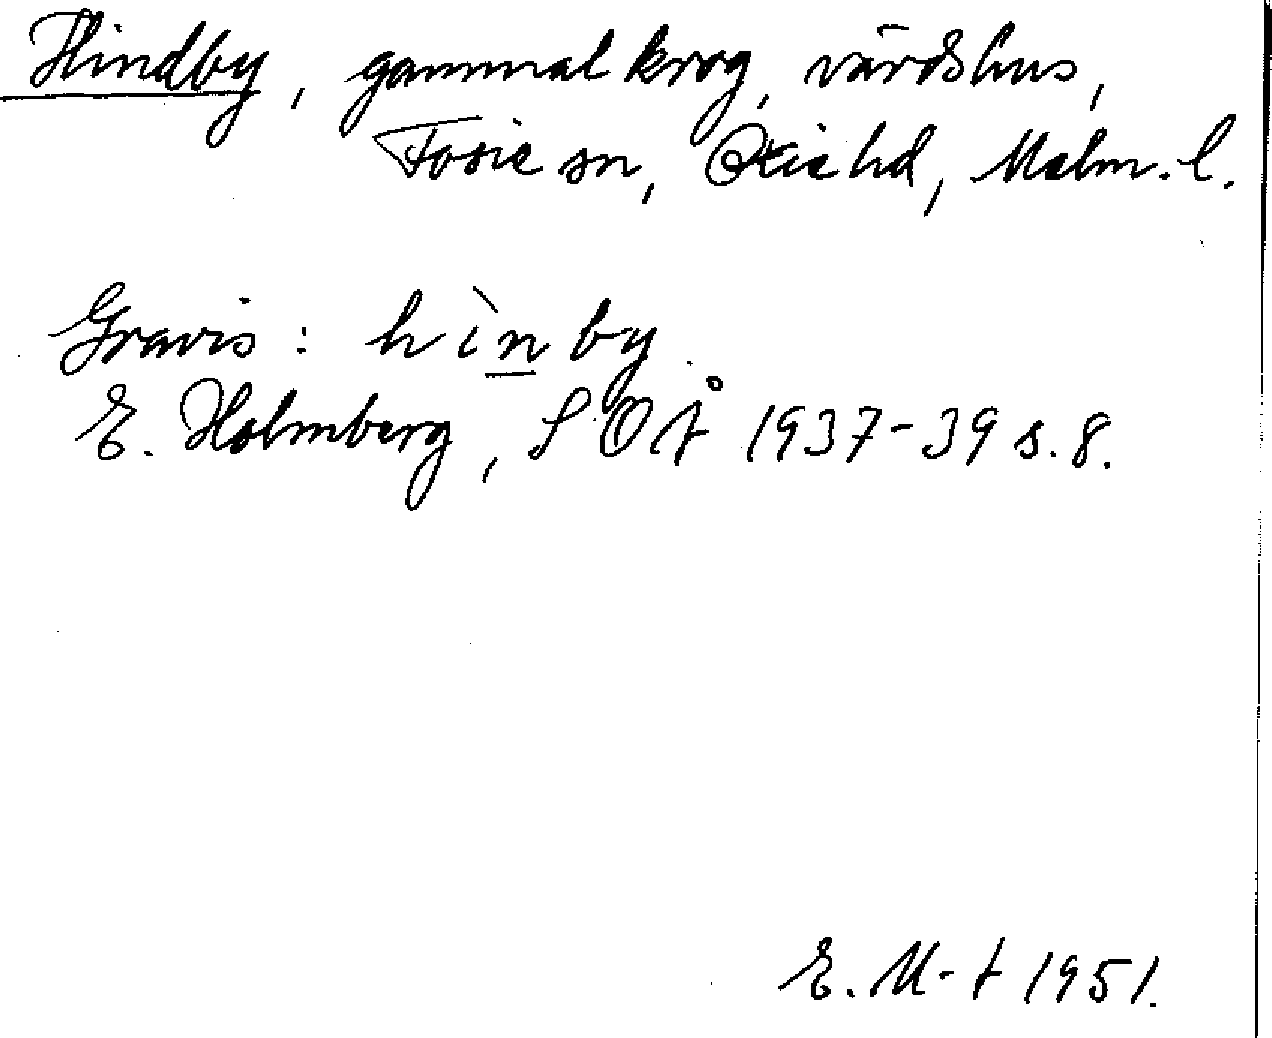 Hindby, gammal krog, värdshus,
Fosie sn, Oxie hd, Malm. l.
Gravis: hìnby
E. Holmberg, SOÅ 1937-39 s. 8.
E. M-t 1951.